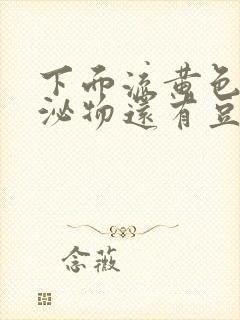 下面流黄色
泌物还有豆
念薇